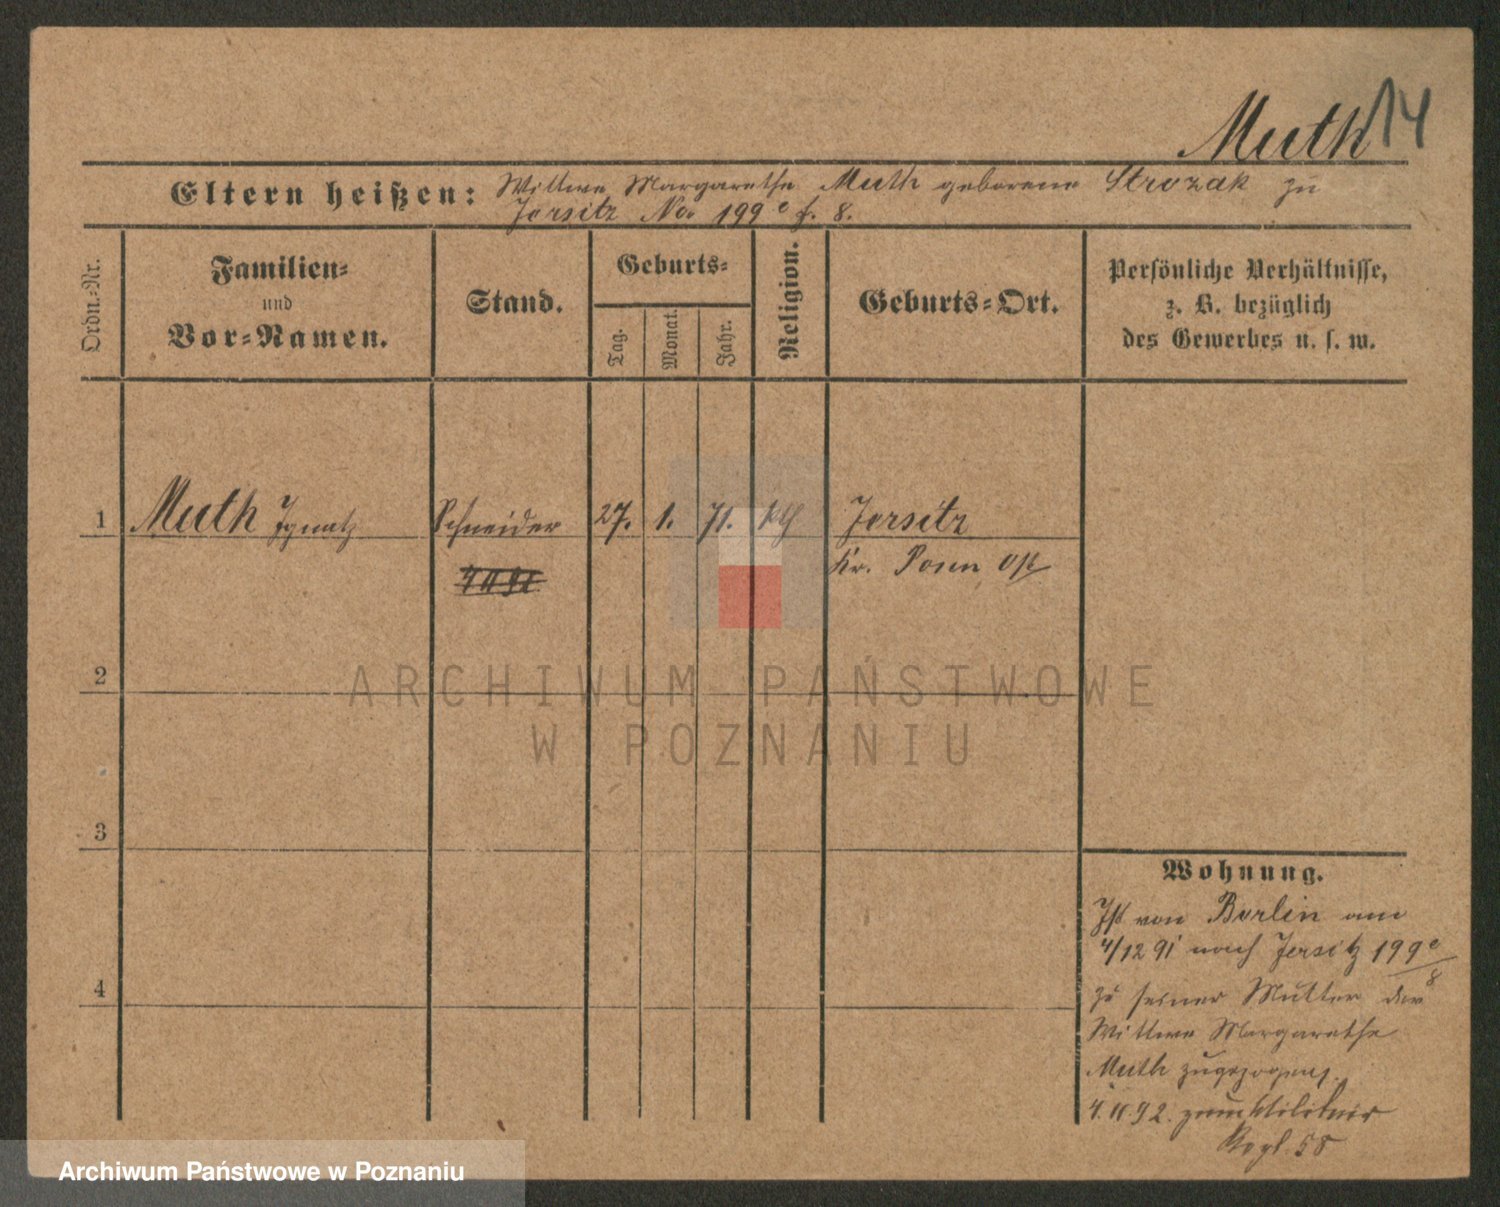 Muth 14
Eltern heißen: Wittwe Margarethe Muth geborene Strozak zu
Jersitz No. 199 e f. 8.
Ordn.-Nr.
Familien- und Vor-Namen.
Stand.
Geburts-
Tag.
Monat.
Jahr.
Religion.
Geburts-Ort.
Persönliche Verhältnisse,
z. B. bezüglich
des Gewerbes u. s. w.
1 Muth Ignatz Schneider 27. 1. 71. Jersitz
Kr. Posen Ost
2
3
4
ARCHIWUM PAŃSTWOWE
W POZNANIU
Wohnung.
Ist von Berlin am
4/12 91 nach Jersitz 199 e/8
zu seiner Mutter der
Wittwe Margarethe
Muth zugezogen.
4. 11 92. zum Militair
58
Archiwum Państwowe w Poznaniu